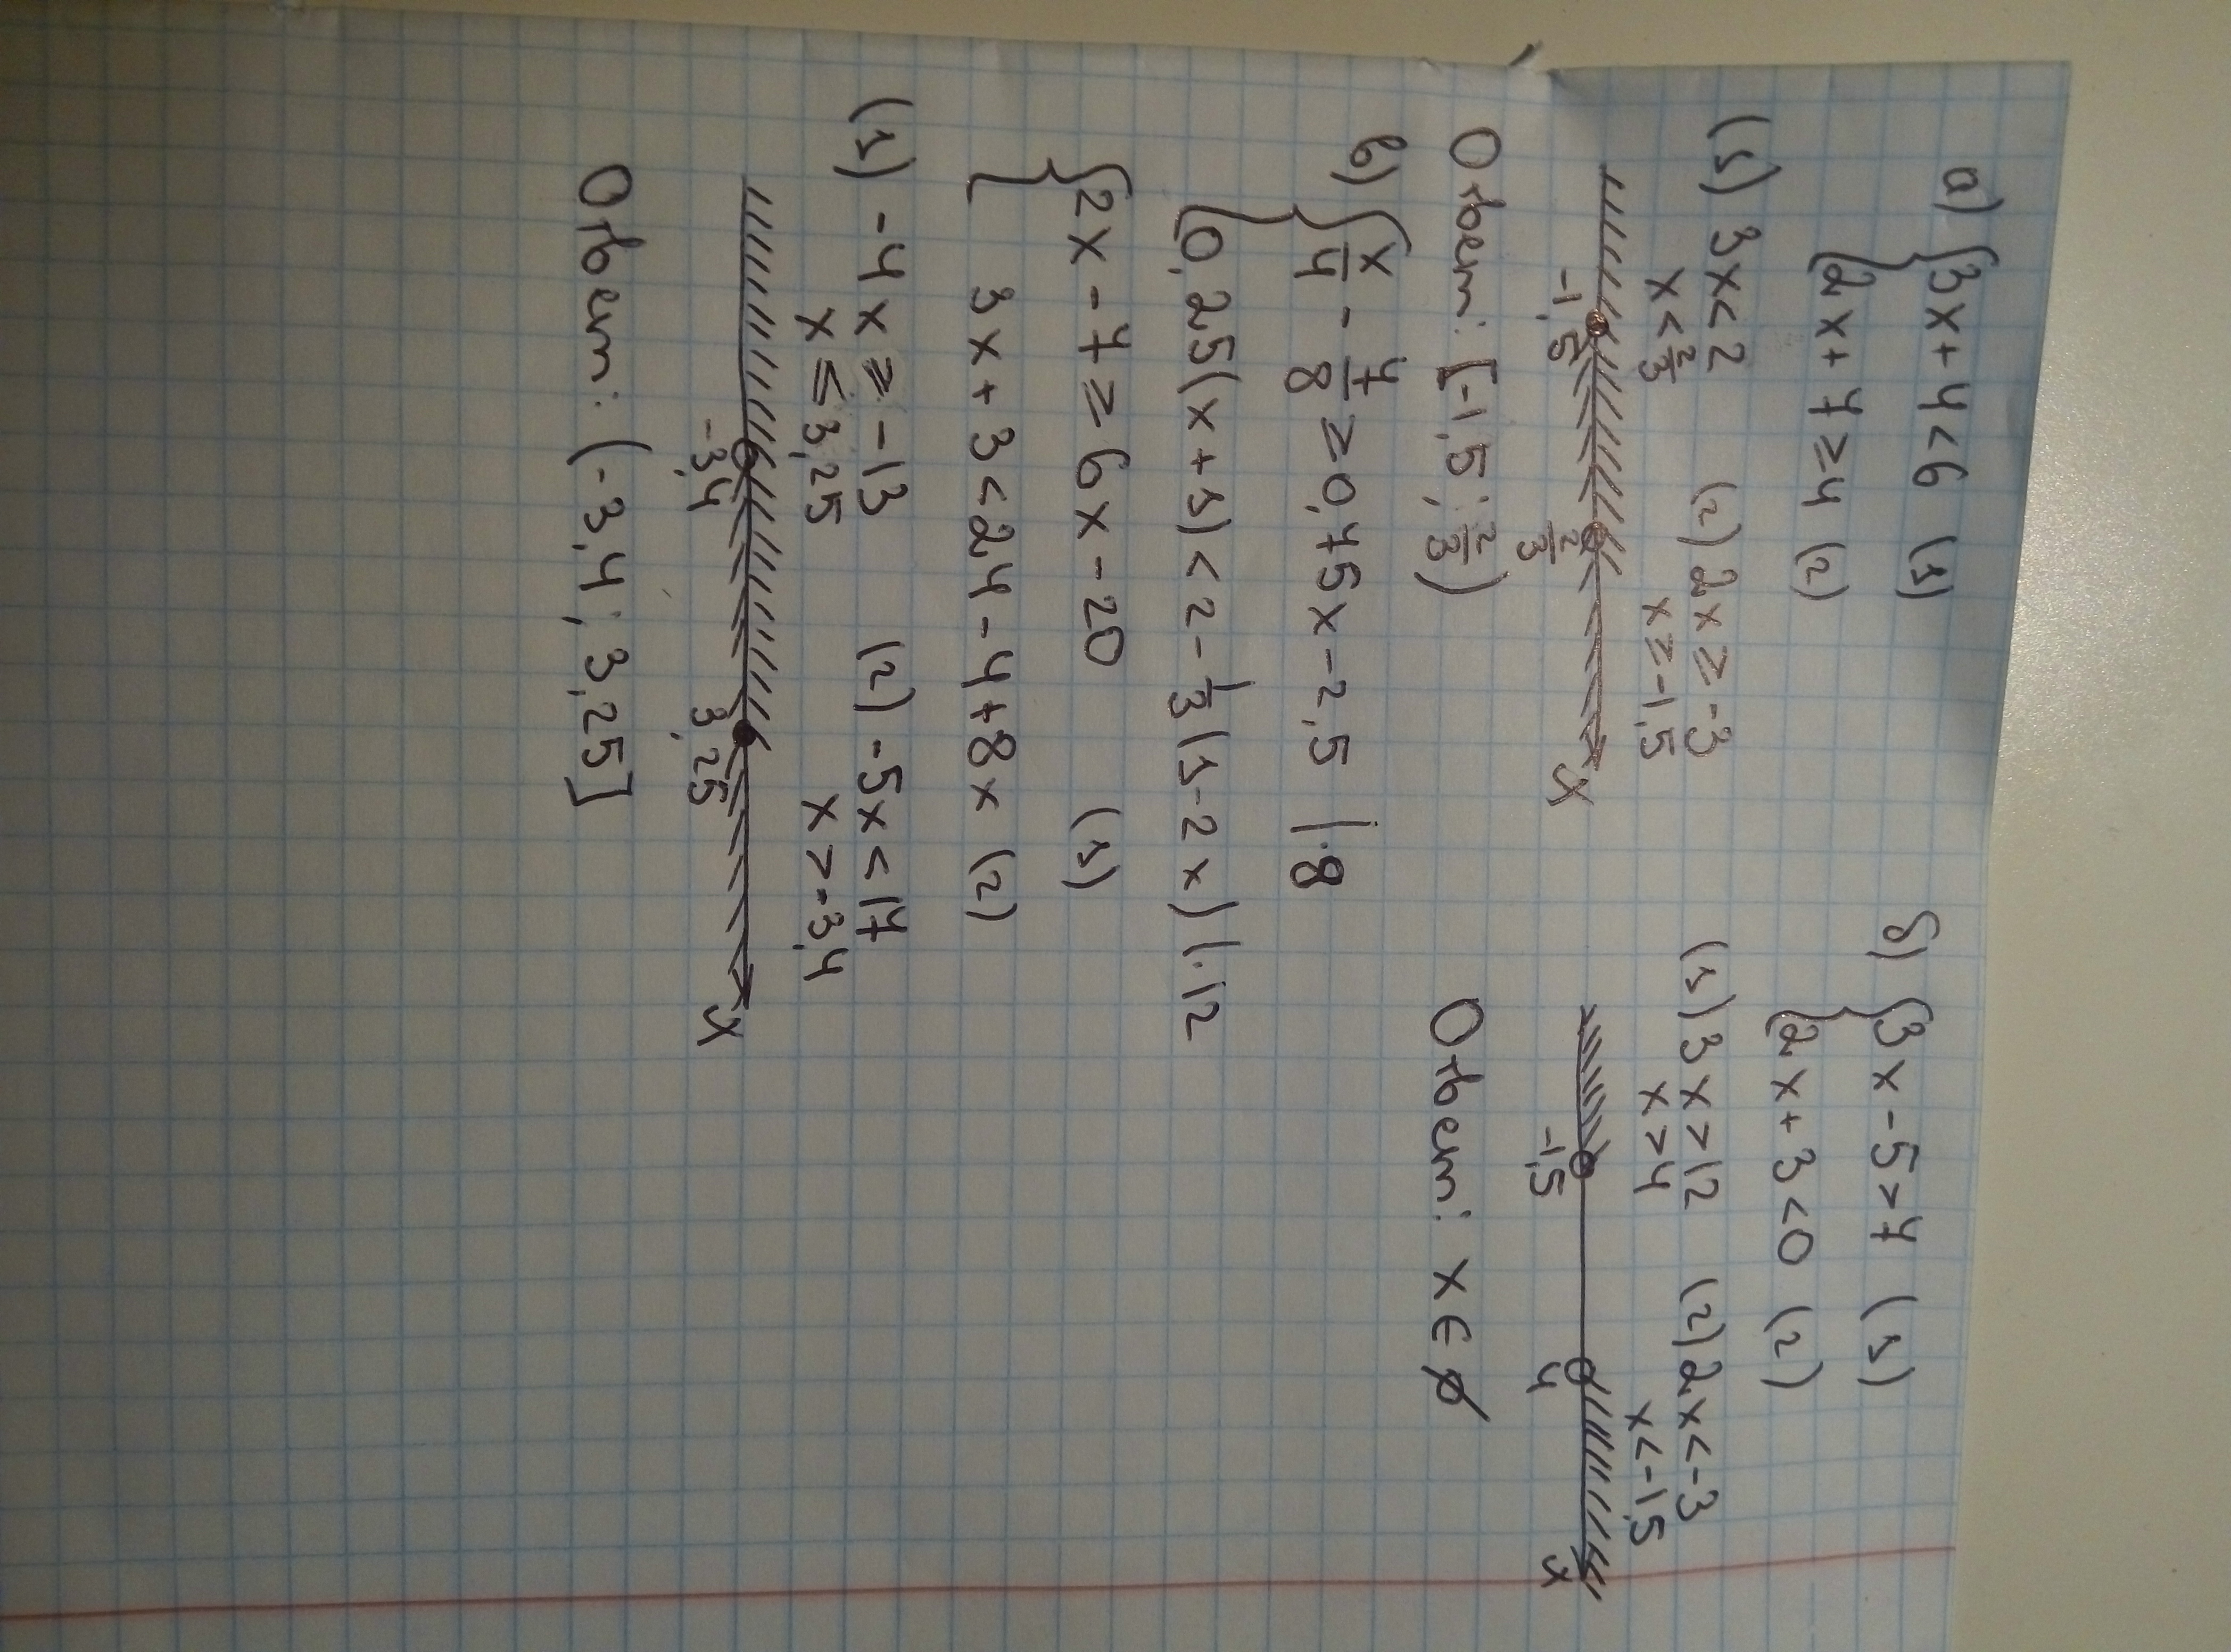 а) { 3x + 4 < 6 (1)
{ 2x + 7 ≥ 4 (2)
(1) 3x < 2 (2) 2x ≥ -3
x < 2/3 x ≥ -1,5
-1,5 2/3 x
Ответ: [-1,5; 2/3)
б) { 3x - 5 > 7 (1)
{ 2x + 3 < 0 (2)
(1) 3x > 12 (2) 2x < -3
x > 4 x < -1,5
-1,5 4 x
Ответ: x ∈ ∅
в) { x/4 - 7/8 ≥ 0,75x - 2,5 | ·8
{ 0,25(x + 1) < 2 - 1/3 (1 - 2x) | ·12
{ 2x - 7 ≥ 6x - 20 (1)
{ 3x + 3 < 24 - 4 + 8x (2)
(1) -4x ≥ -13 (2) -5x < 17
x ≤ 3,25 x > -3,4
-3,4 3,25 x
Ответ: (-3,4; 3,25]